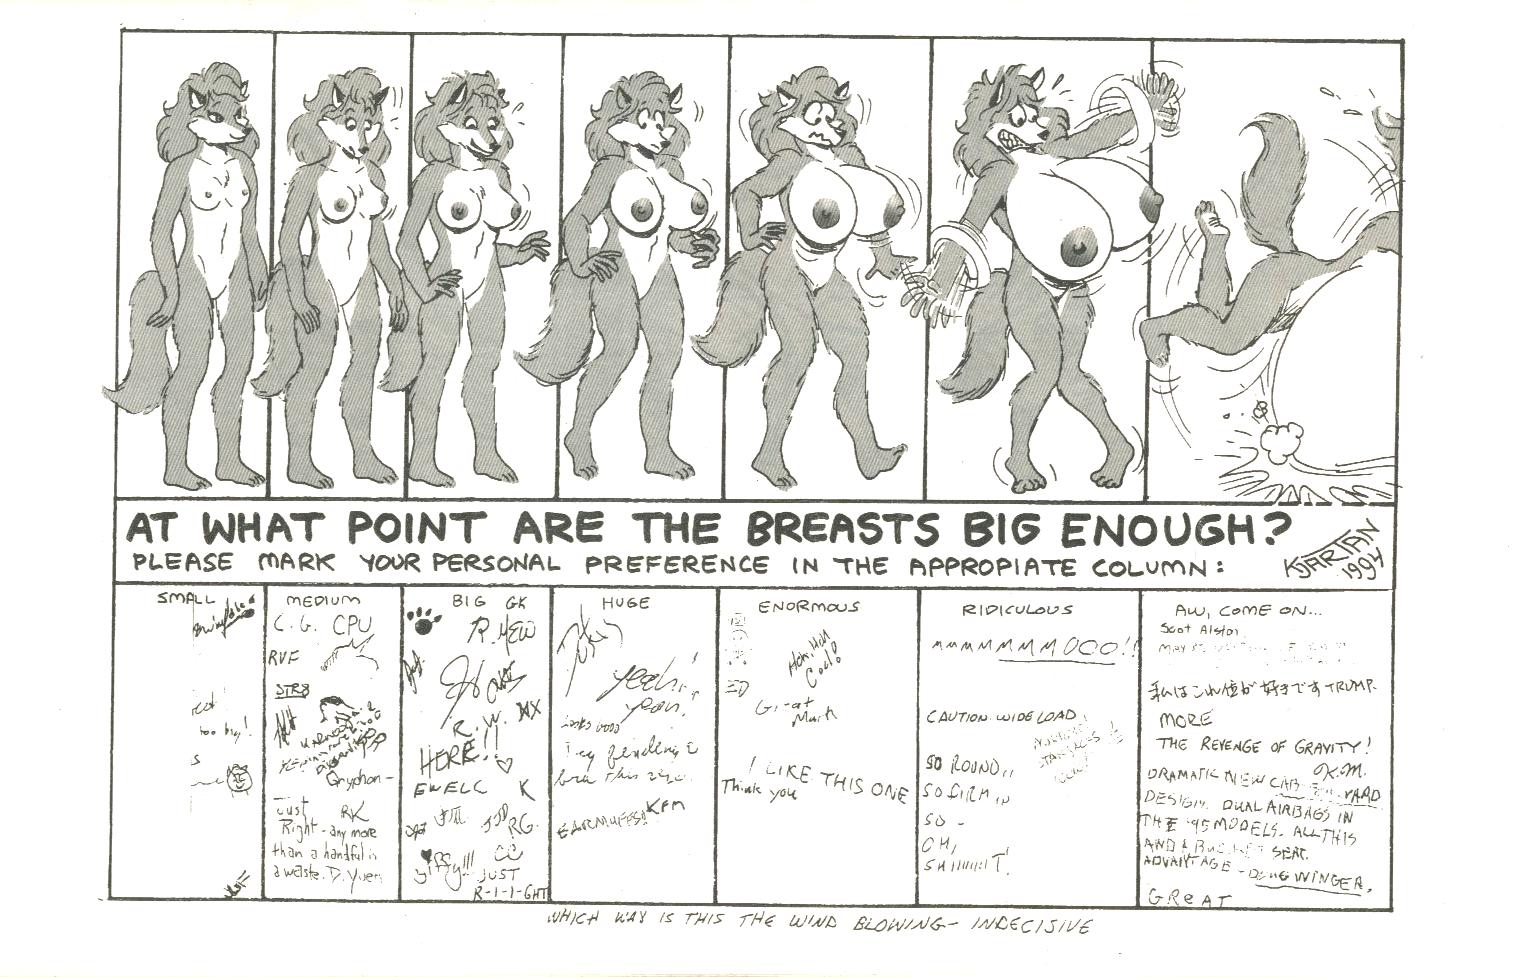 AT WHAT POINT ARE THE BREASTS BIG ENOUGH?
PLEASE MARK YOUR PERSONAL PREFERENCE IN THE APPROPIATE COLUMN:
KJARTAN
1994
SMALL
too big!
MEDIUM
C.G. CPU
RVF
STR8
Gryphon-
Just RK
Right - any more
than a handful is
a waste. D. Yuen
BIG GK
R. MEW
R.W.
HERE!!
EWELC K
RG.
CC
yiffy!!!
JUST
R-I-I-GHT
HUGE
yeah!
yeah!
Looks good
KFM
EARMUFFS!
ENORMOUS
Hoh, Hoh
Cool!
Great
Mark
I LIKE THIS ONE
Think you
RIDICULOUS
MMMMMMMOOO!!
CAUTION: WIDE LOAD!
SO ROUND,,
SO FIRM,,
SO -
OH,
SHIIIIIIT!
AW, COME ON...
Scot Alston
私はこれ位が好きです TRUMP.
MORE
THE REVENGE OF GRAVITY!
K.M.
DRAMATIC NEW CAB FORWARD
DESIGN. DUAL AIRBAGS IN
THE '95 MODELS. ALL THIS
AND A BUCKET SEAT
ADVANTAGE - DOUG WINGER.
GREAT
WHICH WAY IS THIS THE WIND BLOWING- INDECISIVE